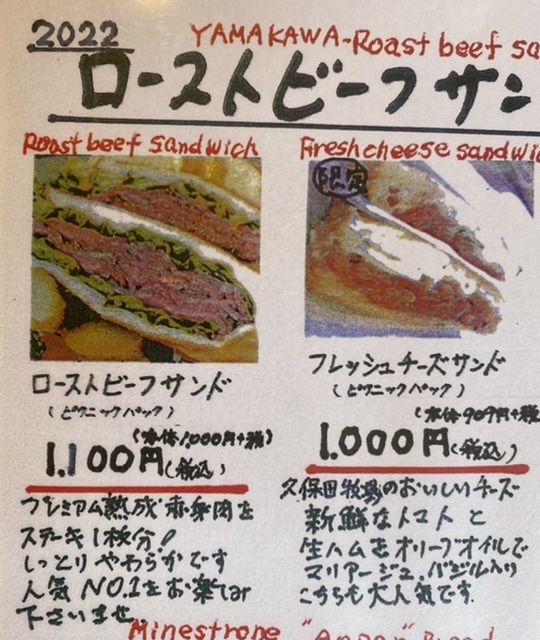 2022
YAMAKAWA-Roast beef sa
ローストビーフサン
Roast beef sandwich
ローストビーフサンド
(ピクニックパック)
(本体1,000円+税)
1.100円(税込)
プレミアム熟成赤身肉を
ステーキ1枚分!
しっとりやわらかです
人気NO.1をお楽しみ
下さいませ
Fresh cheese sandwi
限定
フレッシュチーズサンド
(ピクニックパック)
(本体909円+税
1.000円(税込)
久保田牧場のおいしいチーズ
新鮮なトマトと
生ハムをオリーブオイルで
マリアージュ.バジル入り
こちらも大人気です.
Minestrone